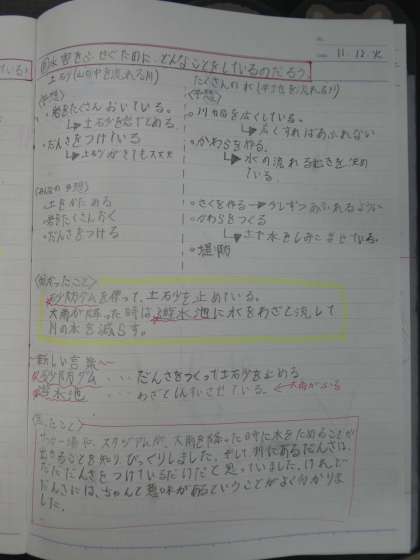 11.12.火
水害をふせぐために、どんなことをしているのだろう。
土石(山の中を流れる川)
たくさんの水(平地を流れる川)
〈予想〉
・岩をたくさんおいている。
→土石を岩でとめる。
・だんさをつけている
〈予想〉
・川はばを広くしている。
→広くすればあふれない
・かわらを作る。
→水の流れる
ている。
〈みんなの予想〉
土をかためる
岩をたくさんおく
・だんさをつける
・さくを作る→少しずつあふれるように
・かわらをつくる
→土で水をしみこませている。
・堤防
〈分かったこと〉
砂防ダムを使って、土石を止めている。
大雨が降った時は遊水地に水をわざと流して
川の水を減らす。
新しい言葉〜
砂防ダム・・・だんさをつくって土石を止める
遊水地・・・わざと させている。←大雨がふる
〈思ったこと〉
サッカー場や、スタジアムが、大雨が降った時に水をためることが
出来ることを知り、びっくりしました。そして、川にあるだんさは、
ただだんさをつけているだけだと思っていました。けれど
だんさには、ちゃんと意味があるということがよく分かりま
した。